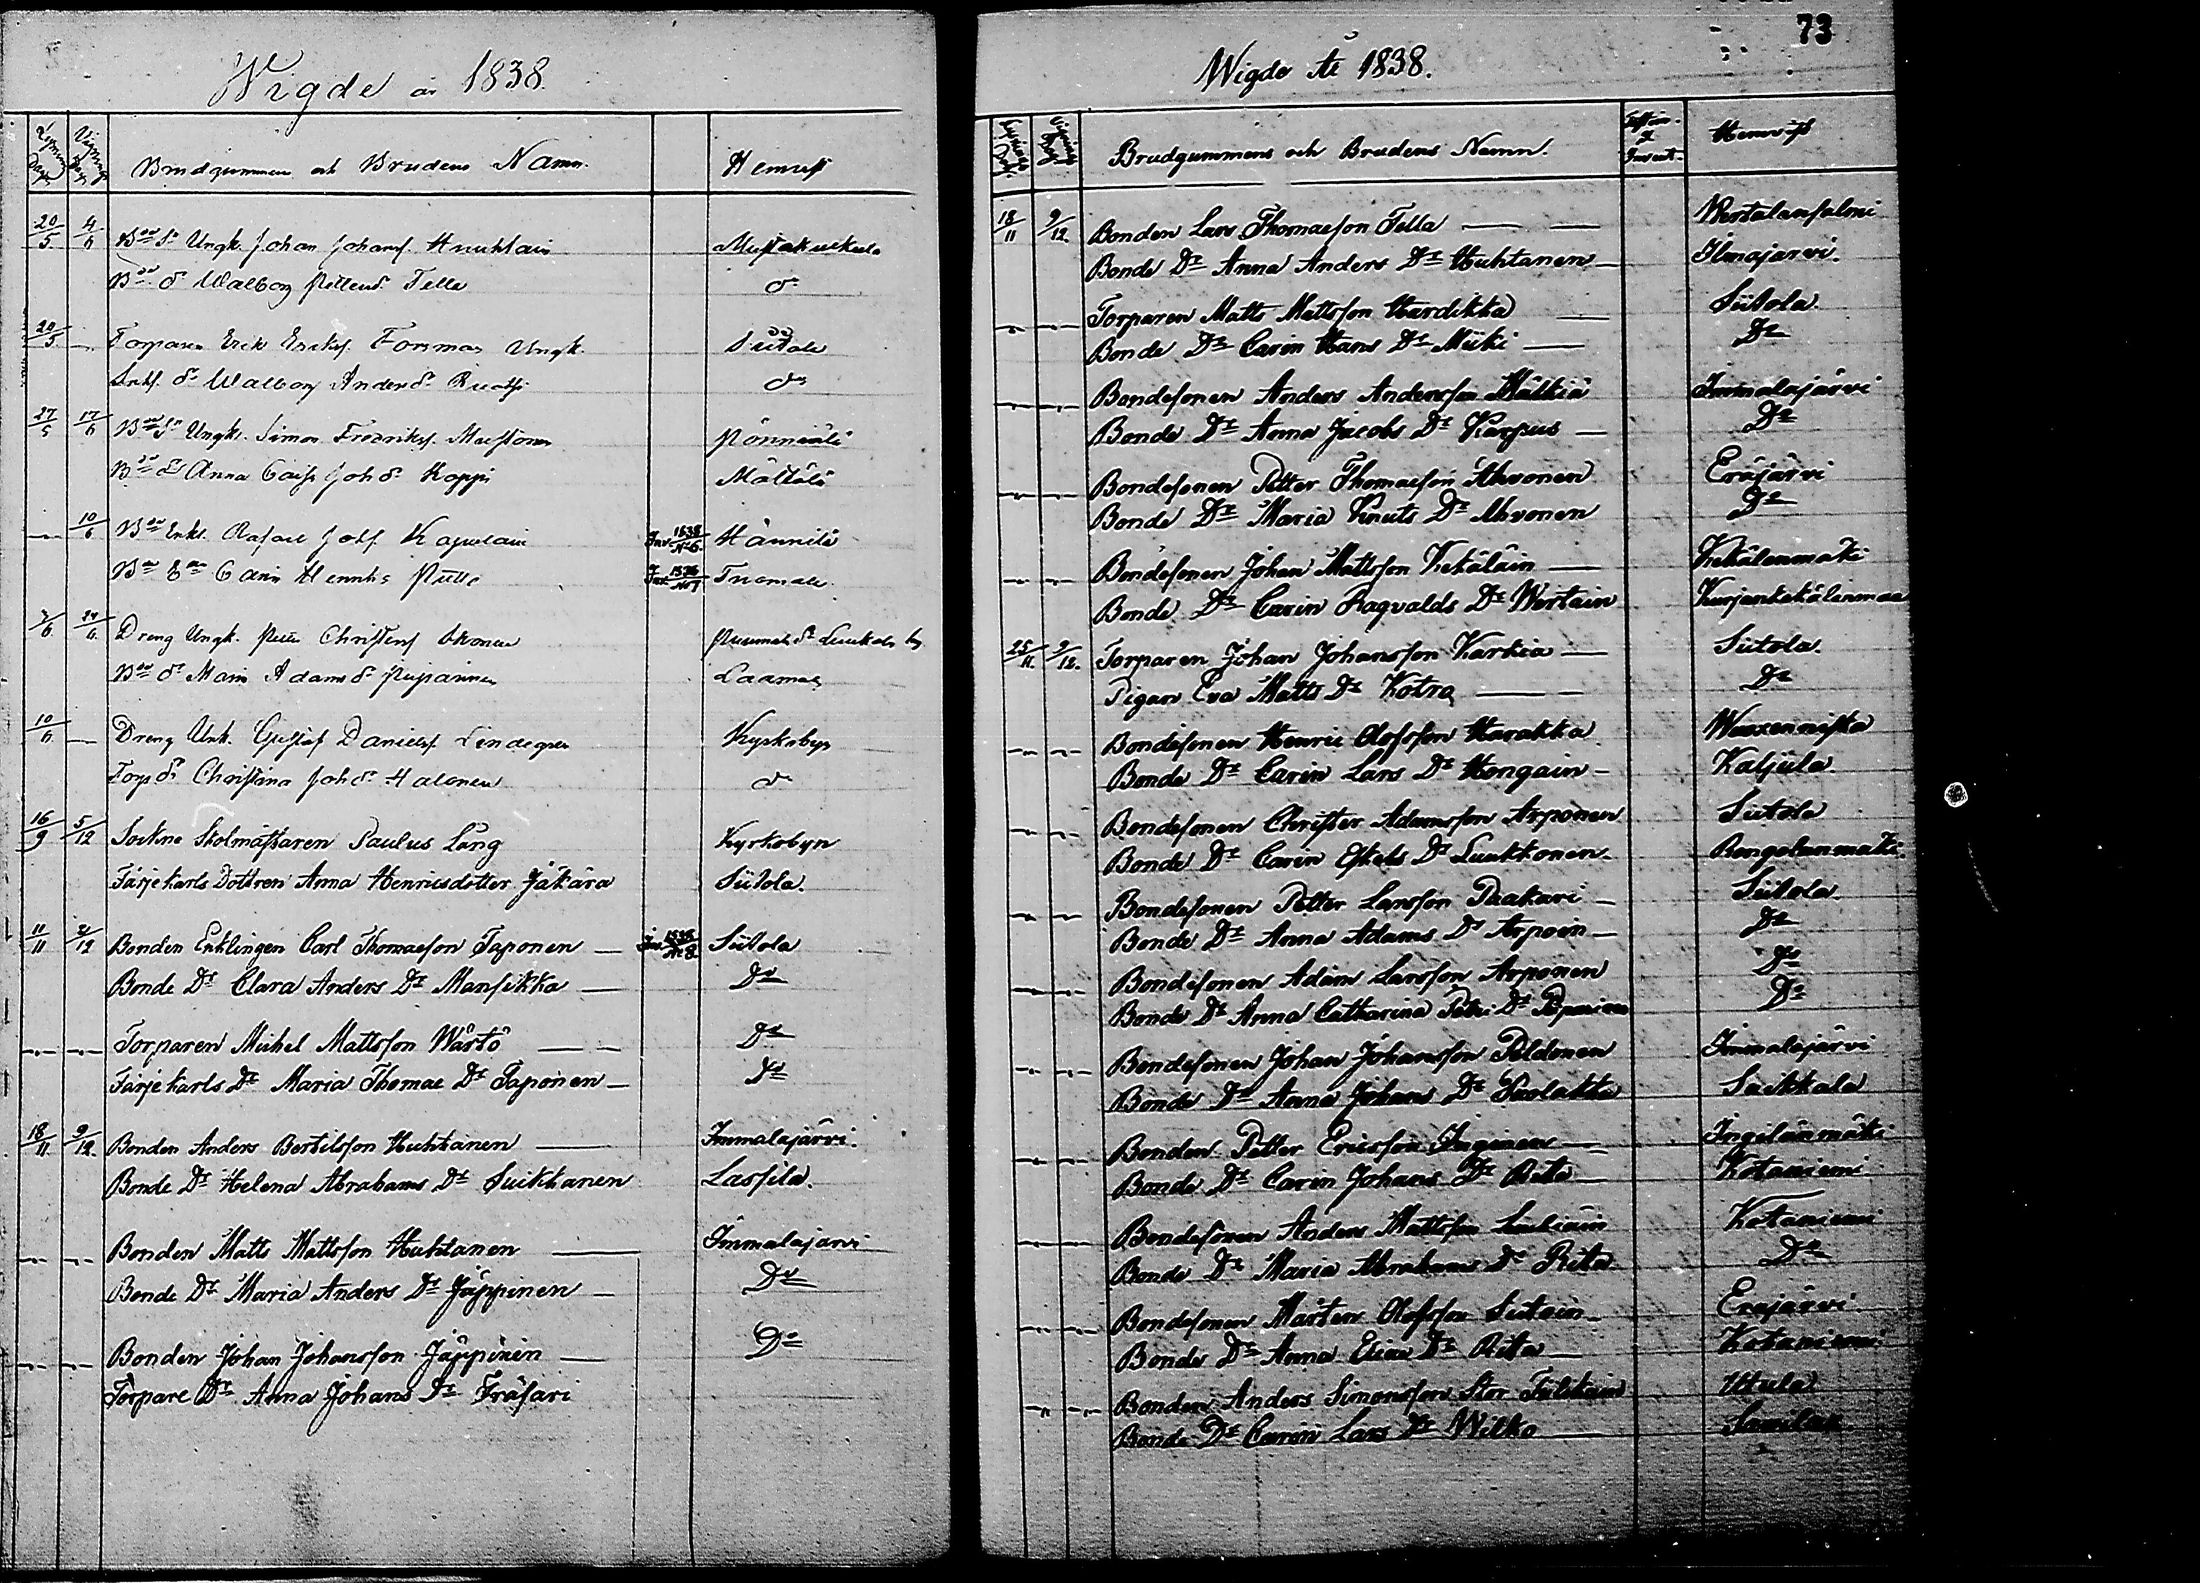 Wigde år 1838.
Lysnings Dag Vignings Dag Brudgummens och Brudens Namn. Hemvist
20/5 4/6 Bde Sn Ungk. Johan Johansf. Huuhtain Mustakuckula
Bde Dr Walborg Petters Dr Tella Do
20/5 — Torparen Erik Eriksf. Forsman Ungk. Siitola
Inhs Dr Walborg Anders Dr Do
27/5 17/6 Bde Sn Ungk. Simon Fredriksf. Pönniälä
Bde Dr Anna Caisa Joh Dr Koppi Mältölä
— 10/6 Bde Enkl. Johsf. Inv. 1838 No 6. Hännilä
Bde Carin Henriks Inv. 1838 No 7 Tuomala
3/6 24/6 Dreng Ungk. Christersf. Ikonen
Bde Dr Maria Adams Dr
10/6 — Dreng Unk. Gustaf Danielsf. Lindegren Kyrkobyn
Torp Dr Christina Joh Dr Halonen Do
16/9 5/12 Sockne Skolmästaren Paulus Lång Kyrkobyn
Färjekarls Dottren Anna Henricsdotter Jäkärä Siitola.
11/11 2/12 Bonden Enklingen Carl Thomasson Taponen — Inv. 1838 No 8 Siitola
Bonde Dr Clara Anders Dr Mansikka — Do
— — Torparen Michel Mattsson Wärtö — Do
Färjekarls Dr Maria Thomae Dr Taponen — Do
18/11 9/12 Bonden Anders Bertilsson Huhtanen — Immalajärvi.
Bonde Dr Helena Abrahams Dr Suikkanen Lassila.
— — Bonden Matts Mattsson Huhtanen — Immalajärvi
Bonde Dr Maria Anders Dr Jäppinen — Do
— — Bonden Johan Johansson Jäppinen — Do
Torpare Dr Anna Johans Dr Fräsari
73
Wigde År 1838.
Lysnings Dag Vignings Dag Brudgummens och Brudens Namn. Hemvist
18/11 9/12 Bonden Lars Thomasson Tella — Wertalansalmi
Bonde Dr Anna Anders Dr Huhtanen — Ilmajarvi.
— — Torparen Matts Mattsson Hardikka — Siitola.
Bonde Dr Carin Hans Dr Miiki — Do
— — Bondesonen Anders Andersson Mälkiä Immalajärvi
Bonde Dr Anna Jacobs Dr Karpus — Do
— — Bondesonen Petter Thomasson Ahvonen Eräjärvi
Bonde Dr Maria Knuts Dr Ahvonen Do
— — Bondesonen Johan Mattsson Kekäläin — Kekälenmäki
Bonde Dr Carin Ragvalds Dr Wertain
25/11 9/12 Torparen Johan Johansson Karkia — Siitola.
Pigan Eva Matts Dr Kotra — Do
— — Bondesonen Henric Olofsson Harakka Wuoxenniska
Bonde Dr Carin Lars Dr Hongain — Kaljula.
— — Bondesonen Christer Adamsson Arponen Siitola
Bonde Dr Carin Eskels Dr Luukkonen. Rongolanmäki.
— — Bondesonen Petter Larsson Paakari — Siitola.
Bonde Dr Anna Adams Dr Arpoin — Do
— — Bondesonen Adam Larsson Arponen Do
Bonde Dr Anna Catharina Petri Dr Do
— — Bondesonen Johan Johansson Peldonen Immalajärvi
Bonde Dr Anna Johans Dr Puolakka Suikkala
— — Bonden Petter Ericsson Inginen — Ingilänmäki
Bonde Dr Carin Johans Dr Rita — Kotaniemi
— — Bondesonen Anders Mattsson Kotaniemi
Bonde Dr Maria Abrahams Dr Rita Do
— — Bondesonen Mårten Olofsson Siitain — Eräjärvi
Bonde Dr Anna Elia Dr Rita — Kotaniemi
— — Bonden Anders Simonsson Stor
Bonde Dr Carin Lars Dr Wilko —